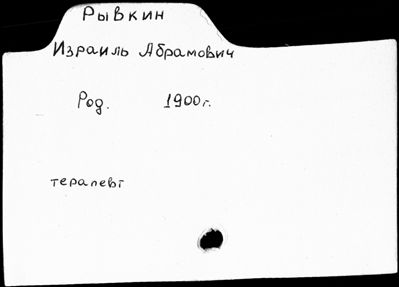 Рывкин
Израиль Абрамович
Род. 1900г.
терапевт